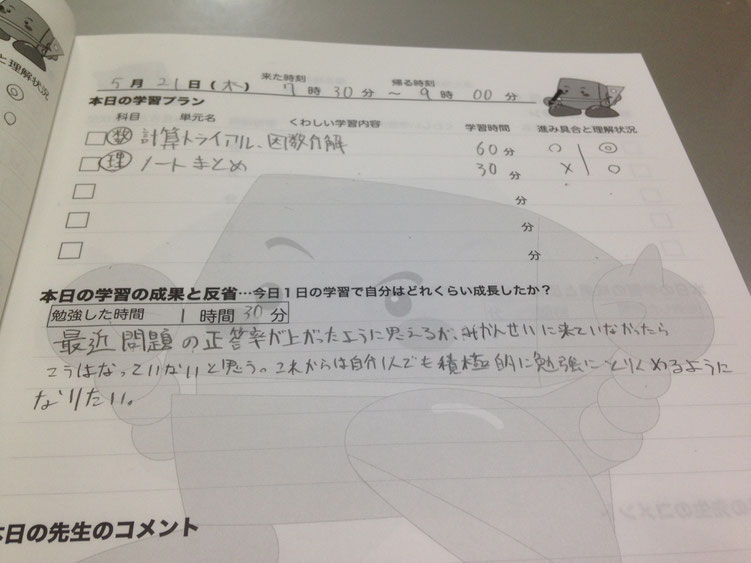 と理解状況
◎
○
来た時刻 帰る時刻
5月21日(木) 7時30分 ～ 9時00分
本日の学習プラン
科目 単元名 くわしい学習内容 学習時間 進み具合と理解状況
□ 数 計算トライアル、因数分解 60分 ○ ◎
□ 理 ノートまとめ 30分 × ○
□ 分
□ 分
□ 分
本日の学習の成果と反省…今日1日の学習で自分はどれくらい成長したか?
勉強した時間 1時間30分
最近問題の正答率が上がったように思えるが、みかんせいに来ていなかったら
こうはなっていないと思う。これからは自分1人でも積極的に勉強にとりくめるように
なりたい。
本日の先生のコメント